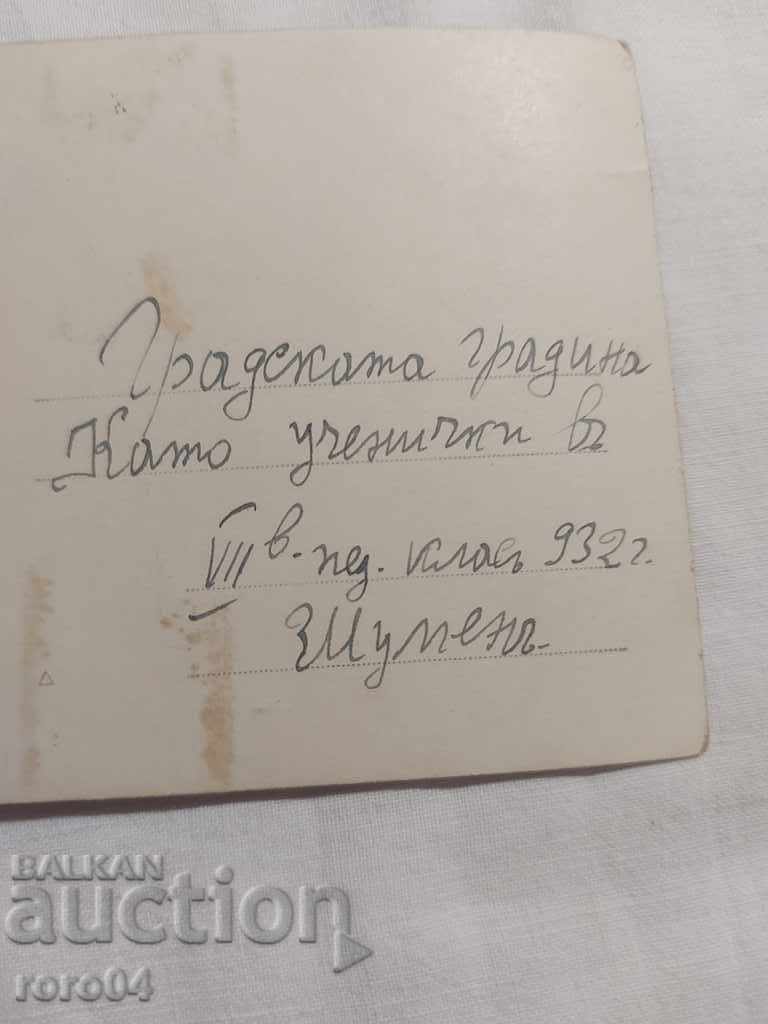 Градската градина
Като ученички въ
VII в. пед. класъ 932 г.
Шуменъ.
BALKAN
auction
roro04